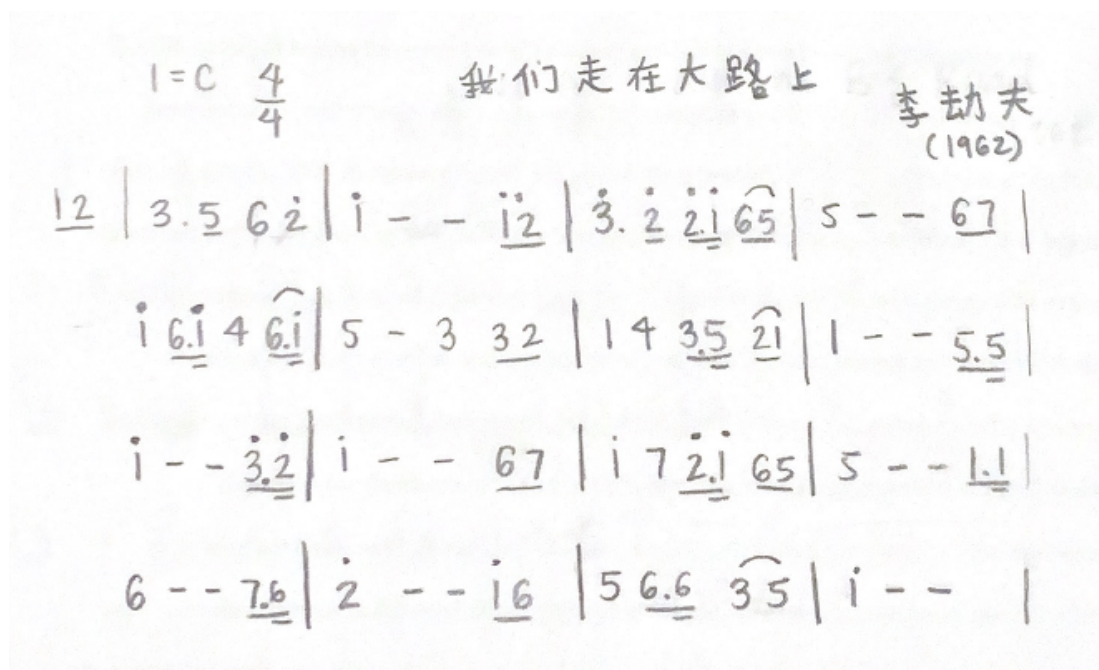 1=C 4/4 我们走在大路上
李劫夫
(1962)
12 | 3.5 6 2̇ | 1̇ - - 1̇2̇ | 3̇. 2̇ 2̇.1̇ 65 | 5 - - 67 |
1̇ 6.1̇ 4 6.1̇ | 5 - 3 32 | 1 4 3.5 21 | 1 - - 5.5 |
1̇ - - 3̇.2̇ | 1̇ - - 67 | 1̇ 7 2̇.1̇ 65 | 5 - - 1.1 |
6 - - 7.6 | 2̇ - - 1̇6 | 5 6.6 35 | 1̇ - - |